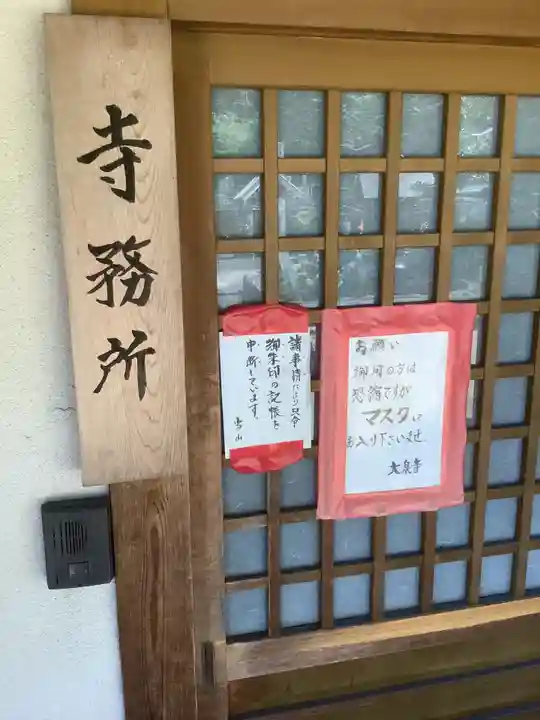 寺務所
諸事情により只今
御朱印の記帳を
中断しています。
当山
お願い
御用の方は
恐縮ですが
マスクで
お入り下さいませ
大泉寺